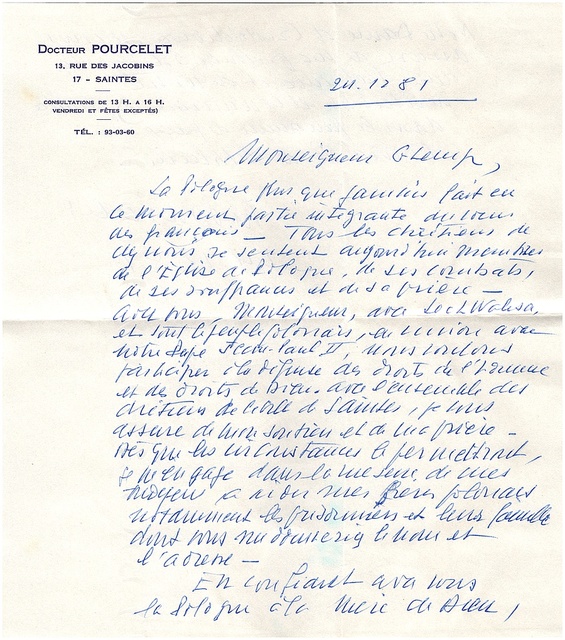 DOCTEUR POURCELET
13, RUE DES JACOBINS
17 - SAINTES
CONSULTATIONS DE 13 H. A 16 H.
VENDREDI ET FÊTES EXCEPTÉS)
TÉL. : 93-03-60
24.12 81
Monseigneur Glemp,
La Pologne plus que jamais fait en
ce moment partie intégrante du coeur
des français — Tous les chrétiens de
chez nous, se sentent aujourd'hui membres
de l'Église de Pologne, de ses combats,
de ses souffrances et de sa prière —
avec vous, Monseigneur, avec Lech Walesa,
et tout le peuple polonais, en union avec
notre Pape Jean-Paul II, nous voulons
participer à la défense des droits de l'homme
et des droits de Dieu. avec l'ensemble des
chrétiens de de Saintes, je vous
assure de mon soutien et de ma prière —
Dès que les circonstances le permettront,
je m'engage dans la mesure de mes
moyens, à aider mes frères polonais
notamment les prisonniers et leur famille
dont vous me donnerez le nom et
l'adresse —
En confiant avec vous
la Pologne à la Mère de Dieu,